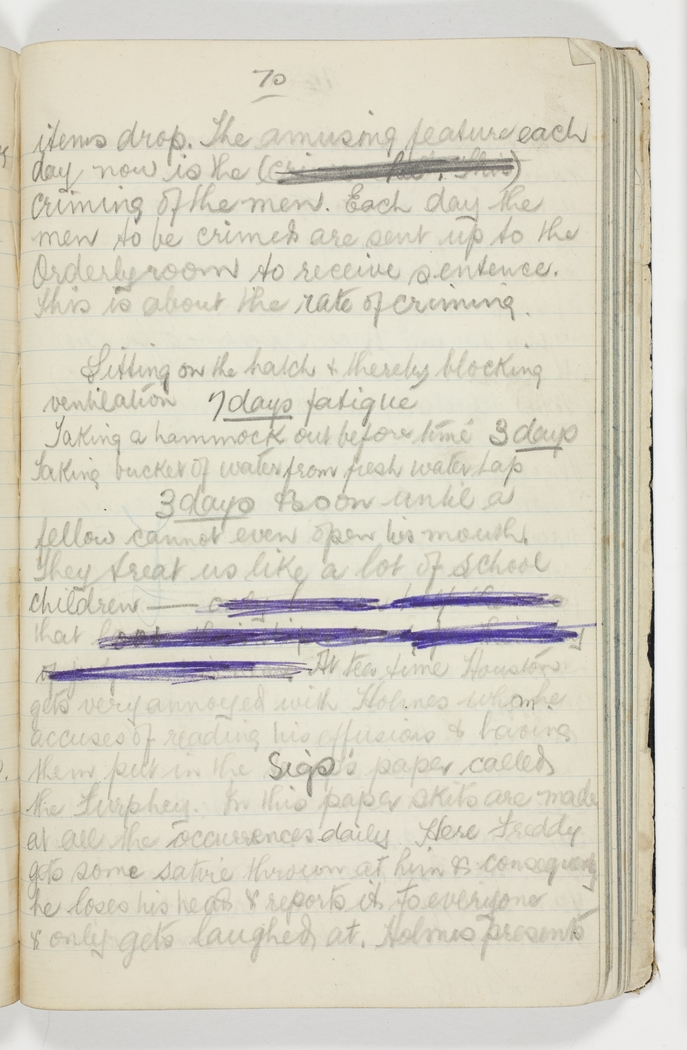 70
items drop. The amusing feature each
day now is the (
criming of the men. Each day the
men to be crimed are sent up to the
Orderlyroom to receive sentence.
This is about the rate of criming.
Sitting on the hatch & thereby blocking
ventilation 7 days fatigue
Taking a hammock out before time 3 days
Taking bucket of water from fresh water tap
3 days & soon until a
fellow cannot even open his mouth.
They treat us like a lot of school
children —
that
At tea time Houston
gets very annoyed with Holmes whom he
accuses of reading his effusions & having
them put in the Sigs's paper called
the Furphey. In this paper skits are made
at all the occurrences daily. Here Freddy
gets some satire thrown at him &
he loses his head & reports it to everyone
& only gets laughed at. Holmes presents